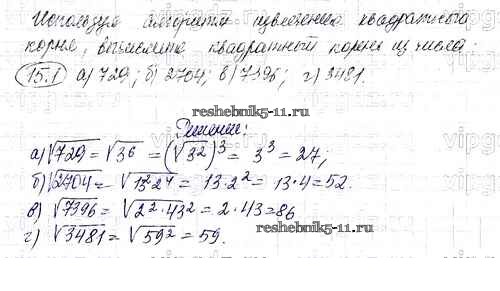 Используя алгоритм извлечения квадратного
корня, вычислите квадратный корень из числа:
15.1 а) 729; б) 2704; в) 7396; г) 3481.
reshebnik5-11.ru
Решение:
а) √729 = √3⁶ = (√3²)³ = 3³ = 27;
б) √2704 = √13²2⁴ = 13·2² = 13·4 = 52.
в) √7396 = √2²·43² = 2·43 = 86
г) √3481 = √59² = 59.
reshebnik5-11.ru